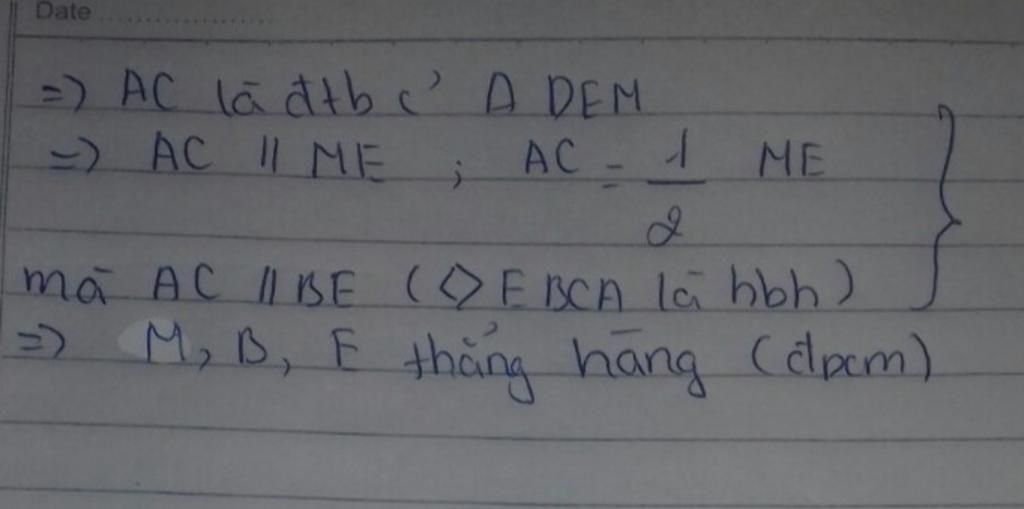 Date
=) AC là đtb c' Δ DEM
=) AC // ME ; AC = 1/2 ME
mà AC // BE (◇ EBCA là hbh)
=) M, B, E thẳng hàng (đpcm)